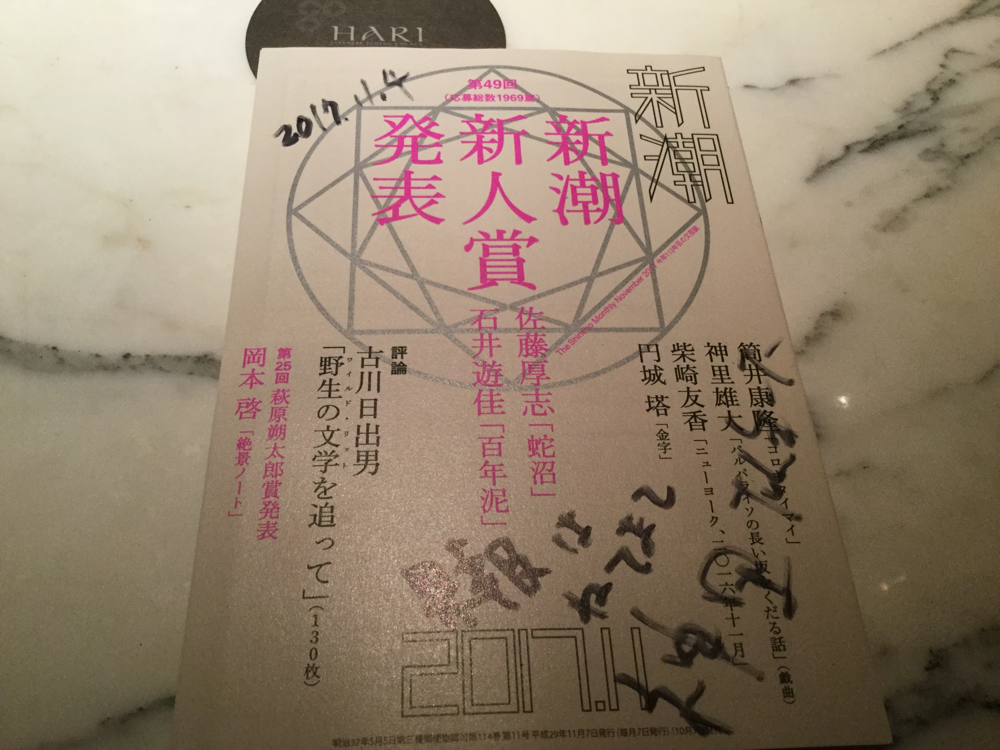 HARI
2017.11.4
新潮
第49回
(応募総数1969篇)
新潮
新人賞
発表
佐藤厚志「蛇沼」
石井遊佳「百年泥」
筒井康隆「コロキタイマイ」
神里雄大「バルパライソの長い坂をくだる話」(戯曲)
柴崎友香「ニューヨーク、二〇一六年十一月」
円城 塔「金字」
評論
古川日出男
「野生の文学を追って」(130枚)
ワイルド・リット
第25回 萩原朔太郎賞発表
岡本 啓「絶景ノート」
The Shincho Monthly November
報は
2017.11
明治37年5月5日第三種郵便物認可第114巻 第11号 平成29年11月7日発行(毎月7日発行)